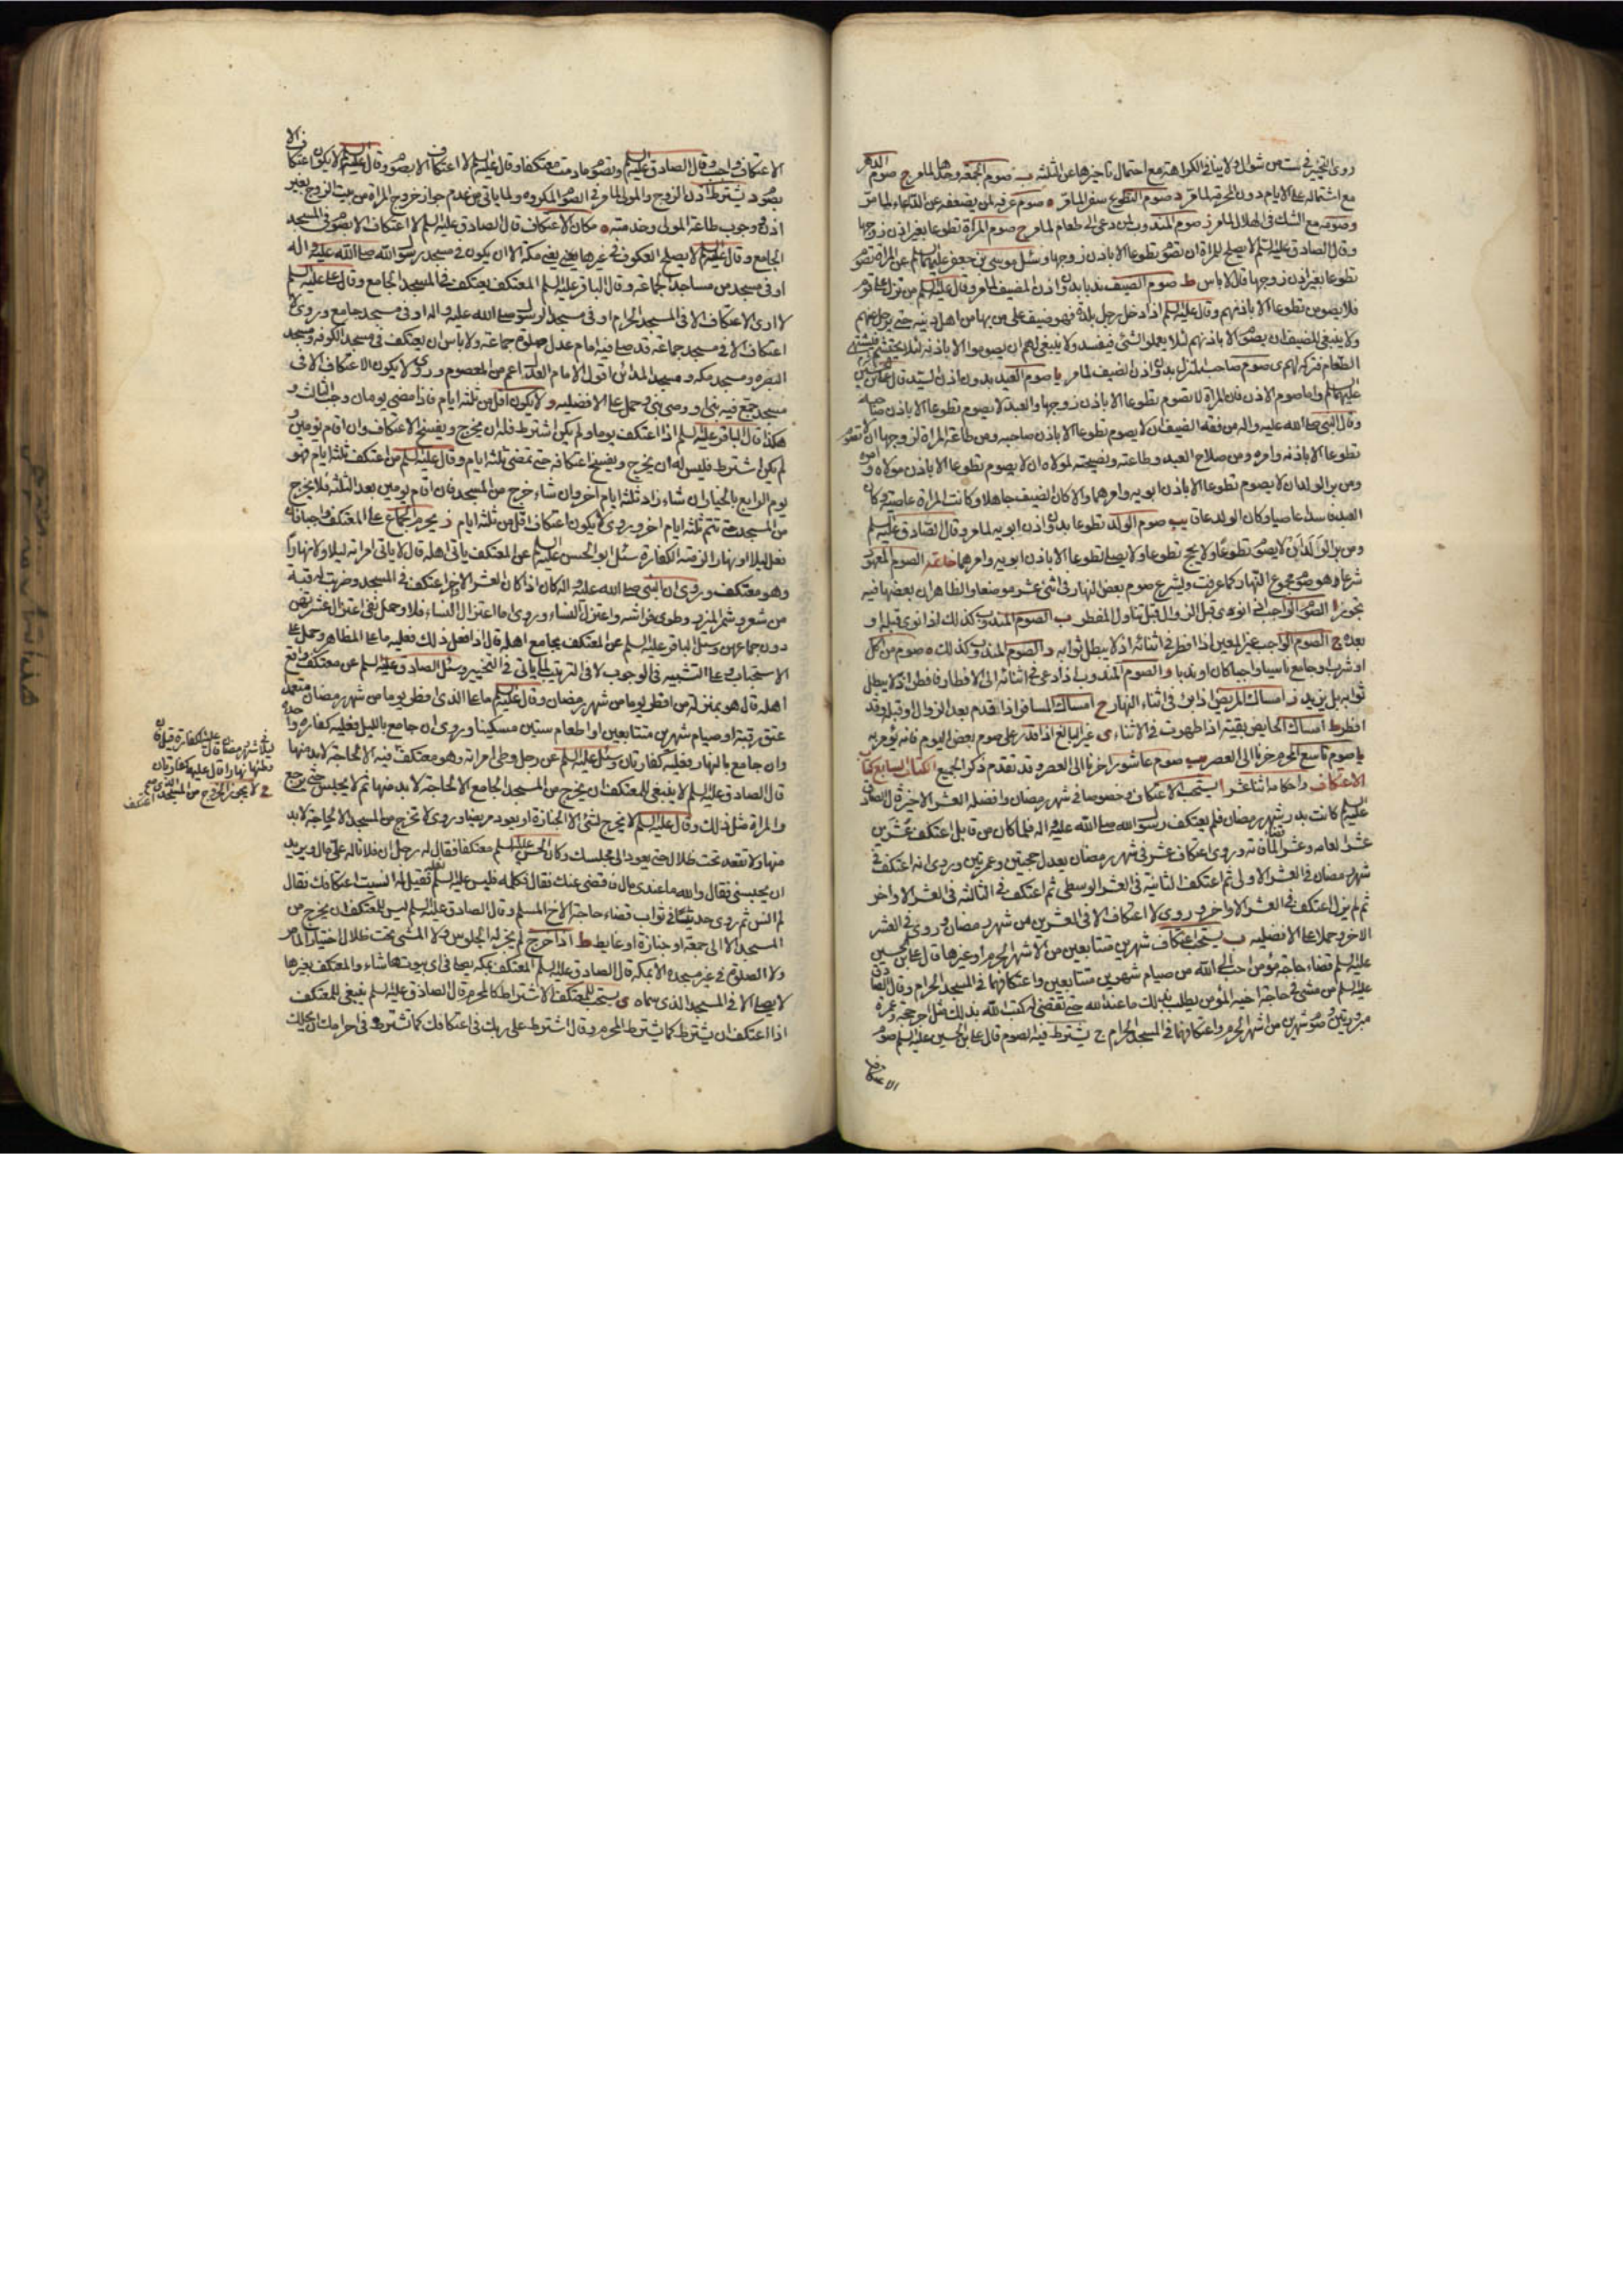 روى التخيير في ست من شوال ولا ينافي الكراهة مع احتمال تأخيرها عن الثلثة ب صوم الجمعة وحدها لما مر ج صوم الدهر
مع اشتماله على الايام دون المحرمة لما مر د صوم التطوع سفرا لما مر ه صوم عرفة لمن يضعفه عن الدعاء لما مر
وصومه مع الشك في الهلال لما مر ز صوم المندوب لمن دعى الى طعام لما مر ح صوم المراة تطوعا بغير اذن زوجها
وقال الصادق عليه السلم لا يصلح للمراة ان تصوم تطوعا الا باذن زوجها وسئل موسى بن جعفر عليهما السلم عن المراة تصوم
تطوعا بغير اذن زوجها قال لا باس ط صوم الضيف ندبا بدون اذن المضيف لما مر وقال عليه السلم من نزل على قوم
فلا يصومن تطوعا الا باذنهم وقال عليه السلم اذا دخل رجل بلدة فهو ضيف على من بها من اهل دينه حتى يرحل عنهم
ولا ينبغي للضيف ان يصوم الا باذنهم لئلا يعملوا الشئ فيفسد ولا ينبغي لهم ان يصوموا الا باذنه لئلا يحتشم فيشتهى
الطعام فتركه لهم ى صوم صاحب المنزل بدون اذن الضيف لما مر يا صوم العبد بدون اذن السيد قال على بن الحسين
عليهما السلم واما صوم الاذن فان المراة لا تصوم تطوعا الا باذن زوجها والعبد لا يصوم تطوعا الا باذن صاحبه
وقال النبى صلى الله عليه واله من فقه الضيف ان لا يصوم تطوعا الا باذن صاحبه ومن طاعة المراة لزوجها ان لا تصوم
تطوعا الا باذنه وامره ومن صلاح العبد وطاعته ونصيحته لمولاه ان لا يصوم تطوعا الا باذن مولاه وامره
ومن بر الولد ان لا يصوم تطوعا الا باذن ابويه وامرهما والا كان الضيف جاهلا وكانت المراة عاصية وكان
العبد فاسدا عاصيا وكان الولد عاقا يب صوم الولد تطوعا بدون اذن ابويه لما مر وقال الصادق عليه السلم
ومن بر الولد ان لا يصوم تطوعا ولا يحج تطوعا ولا يصلى تطوعا الا باذن ابويه وامرهما خاتمة الصوم المعهود
شرعا هو صوم مجموع النهار كما عرفت ويشرع صوم بعض النهار في اثنى عشر موضعا والظاهر ان بعضها فيه
تجوز ا الصوم الواجب اذا نوى قبل الزوال قبل تناول المفطر ب الصوم المندوب كذلك اذا نوى قبله او
بعده ج الصوم الواجب غير المعين اذا افطر في اثنائه اذ لا يبطل ثوابه د الصوم المندوب كذلك ه صوم من اكل
او شرب او جامع ناسيا واجبا كان او ندبا و الصوم المندوب اذا دعى في اثنائه الى الافطار فافطر اذ لا يبطل
ثوابه بل يزيد ز امساك المريض اذا برئ في اثناء النهار ح امساك المسافر اذا قدم بعد الزوال او قبله وقد
افطر ط امساك الحايض بقيته اذا طهرت في الاثناء ى غير البالغ اذا قدر على صوم بعض اليوم فانه يؤمر به
يا صوم تاسع المحرم حزنا الى العصر يب صوم عاشورا حزنا الى العصر وقد تقدم ذكر الجميع الكتاب السابع كتاب
الاعتكاف واحكامه اثنا عشر ا يستحب الاعتكاف وخصوصا في شهر رمضان وافضله العشر الاخيرة قال الصادق
عليه السلم كانت بدر في شهر رمضان فلم يعتكف رسول الله صلى الله عليه واله فلما كان من قابل اعتكف عشرين
عشرا لعامه وعشرا لما فاته وروى اعتكاف عشر في شهر رمضان يعدل حجتين وعمرتين وروى انه اعتكف في
شهر رمضان في العشر الاولى ثم اعتكف الثانية في العشر الوسطى ثم اعتكف في الثالثة في العشر الاواخر
ثم لم يزل اعتكف في العشر الاواخر وروى لا اعتكاف الا في العشرين من شهر رمضان وروى في العشر
الاخر وحملا على الافضلية ب يستحب اعتكاف شهرين متتابعين من الاشهر الحرم او غيرها قال على بن الحسين
عليه السلم قضاء حاجة مؤمن احب الى الله من صيام شهرين متتابعين واعتكافهما في المسجد الحرام وقال الصادق
عليه السلم من مشى في حاجة اخيه المؤمن يطلب بذلك ما عند الله حتى تقضى له كتب الله بذلك مثل اجر حجة وعمرة
مبرورتين وصوم شهرين من اشهر الحرم واعتكافهما في المسجد الحرام ج يشترط فيه الصوم قال على بن الحسين عليه السلم صوم
الاعتكاف
الاعتكاف واجب وقال الصادق عليه السلم وتصوم ما دمت معتكفا وقال عليه السلم لا اعتكاف الا بصوم وقال عليه السلم لا يكون اعتكاف الا
بصوم د يشترط اذن الزوج والمولى لما مر في الصوم المكروه ولما ياتى من عدم جواز خروج المراة من بيت الزوج بغير
اذنه ووجوب طاعة المولى وخدمته ه مكان الاعتكاف قال الصادق عليه السلم لا اعتكاف الا بصوم في المسجد
الجامع وقال عليه السلم لا يصلح العكوف في غيرها يعنى غير مكة الا ان يكون في مسجد رسول الله صلى الله عليه واله
او في مسجد من مساجد الجماعة وقال الباقر عليه السلم المعتكف يعتكف في المسجد الجامع وقال على عليه السلم
لا ارى الاعتكاف الا في المسجد الحرام او في مسجد الرسول صلى الله عليه واله او في مسجد جامع وروى لا
اعتكاف الا في مسجد جماعة قد صلى فيه امام عدل صلوة جماعة ولا باس ان يعتكف في مسجد الكوفة ومسجد
البصرة ومسجد مكة ومسجد المدائن اقول الامام العدل اعم من المعصوم وروى لا يكون الاعتكاف الا في
مسجد جمع فيه نبى او وصى نبى وحمل على الافضلية و لا يكون اقل من ثلثة ايام فاذا مضى يومان وجب الثالث و
هكذا قال الباقر عليه السلم اذا اعتكف يوما ولم يكن اشترط فله ان يخرج ويفسخ الاعتكاف وان اقام يومين و
لم يكن اشترط فليس له ان يخرج ويفسخ اعتكافه حتى تمضى ثلثة ايام وقال عليه السلم من اعتكف ثلثة ايام فهو
يوم الرابع بالخيار ان شاء زاد ثلثة ايام اخر وان شاء خرج من المسجد فان اقام يومين بعد الثلثة فلا يخرج
من المسجد حتى تتم ثلثة ايام اخر وروى لا يكون اعتكاف اقل من ثلثة ايام ز يحرم الجماع على المعتكف واجبا فان
فعل ليلا او نهارا لزمته الكفارة سئل ابو الحسن عليه السلم عن المعتكف ياتى اهله قال لا ياتى امراته ليلا ولا نهارا
وهو معتكف وروى ان النبى صلى الله عليه واله كان اذا كان العشر الاواخر اعتكف في المسجد وضربت له قبة
من شعر وشمر الميزر وطوى فراشه واعتزل النساء وروى اما اعتزال النساء فلا وحمل نفى اعتزال
دون جماعهن وسئل الباقر عليه السلم عن المعتكف يجامع اهله قال اذا فعل ذلك فعليه ما على المظاهر وحمل على
الاستحباب وعلى التشبيه في الوجوب لا في الترتيب لما ياتى في التخيير وسئل الصادق عليه السلم عن معتكف واقع
اهله قال هو بمنزلة من افطر يوما من شهر رمضان وقال عليه السلم ما على الذى افطر يوما من شهر رمضان متعمدا
عتق رقبة او صيام شهرين متتابعين او اطعام ستين مسكينا وروى ان جامع بالليل فعليه كفارة واحدة
وان جامع بالنهار فعليه كفارتان وسئل عليه السلم عن رجل وطى امراته وهو معتكف فيه الا لحاجة لابد منها
قال الصادق عليه السلم لا ينبغى للمعتكف ان يخرج من المسجد الجامع الا لحاجة لابد منها ثم لا يجلس حتى يرجع
والمراة مثل ذلك وقال عليه السلم لا يخرج لشئ الا لجنازة او يعود مريضا وروى لا تخرج من المسجد الا لحاجة لابد
منها ولا تقعد تحت ظلال حتى يعود الى مجلسك وكان الحسن عليه السلم معتكفا فقال له رجل ان فلانا له على مال ويريد
ان يحبسنى فقال والله ما عندى مال فاقضى عنك فقال فكلمه فلبس عليه السلم نعله فقيل له انسيت اعتكافك فقال
لم انس ثم روى حديثا في ثواب قضاء حاجة الاخ المسلم وقال الصادق عليه السلم ليس للمعتكف ان يخرج من
المسجد الا الى جمعة او جنازة او غايط ط اذا خرج لم يجز له الجلوس ولا المشى تحت ظلال اختيارا لما مر
ولا الصلوة في غير مسجده الا بمكة قال الصادق عليه السلم المعتكف بمكة يصلى في اى بيوتها شاء والمعتكف بغيرها
لا يصلى الا في المسجد الذى سماه ى يستحب للمعتكف الاشتراط كالمحرم قال الصادق عليه السلم ينبغى للمعتكف
اذا اعتكف ان يشترط كما يشترط المحرم وقال اشترط على ربك في اعتكافك كما تشترط في احرامك ان يحلك
ليلا في شهر رمضان قال عليه الكفارة قيل فان
وطئها نهارا قال عليه كفارتان
ح لا يجوز الخروج من المسجد الذى
اعتكف